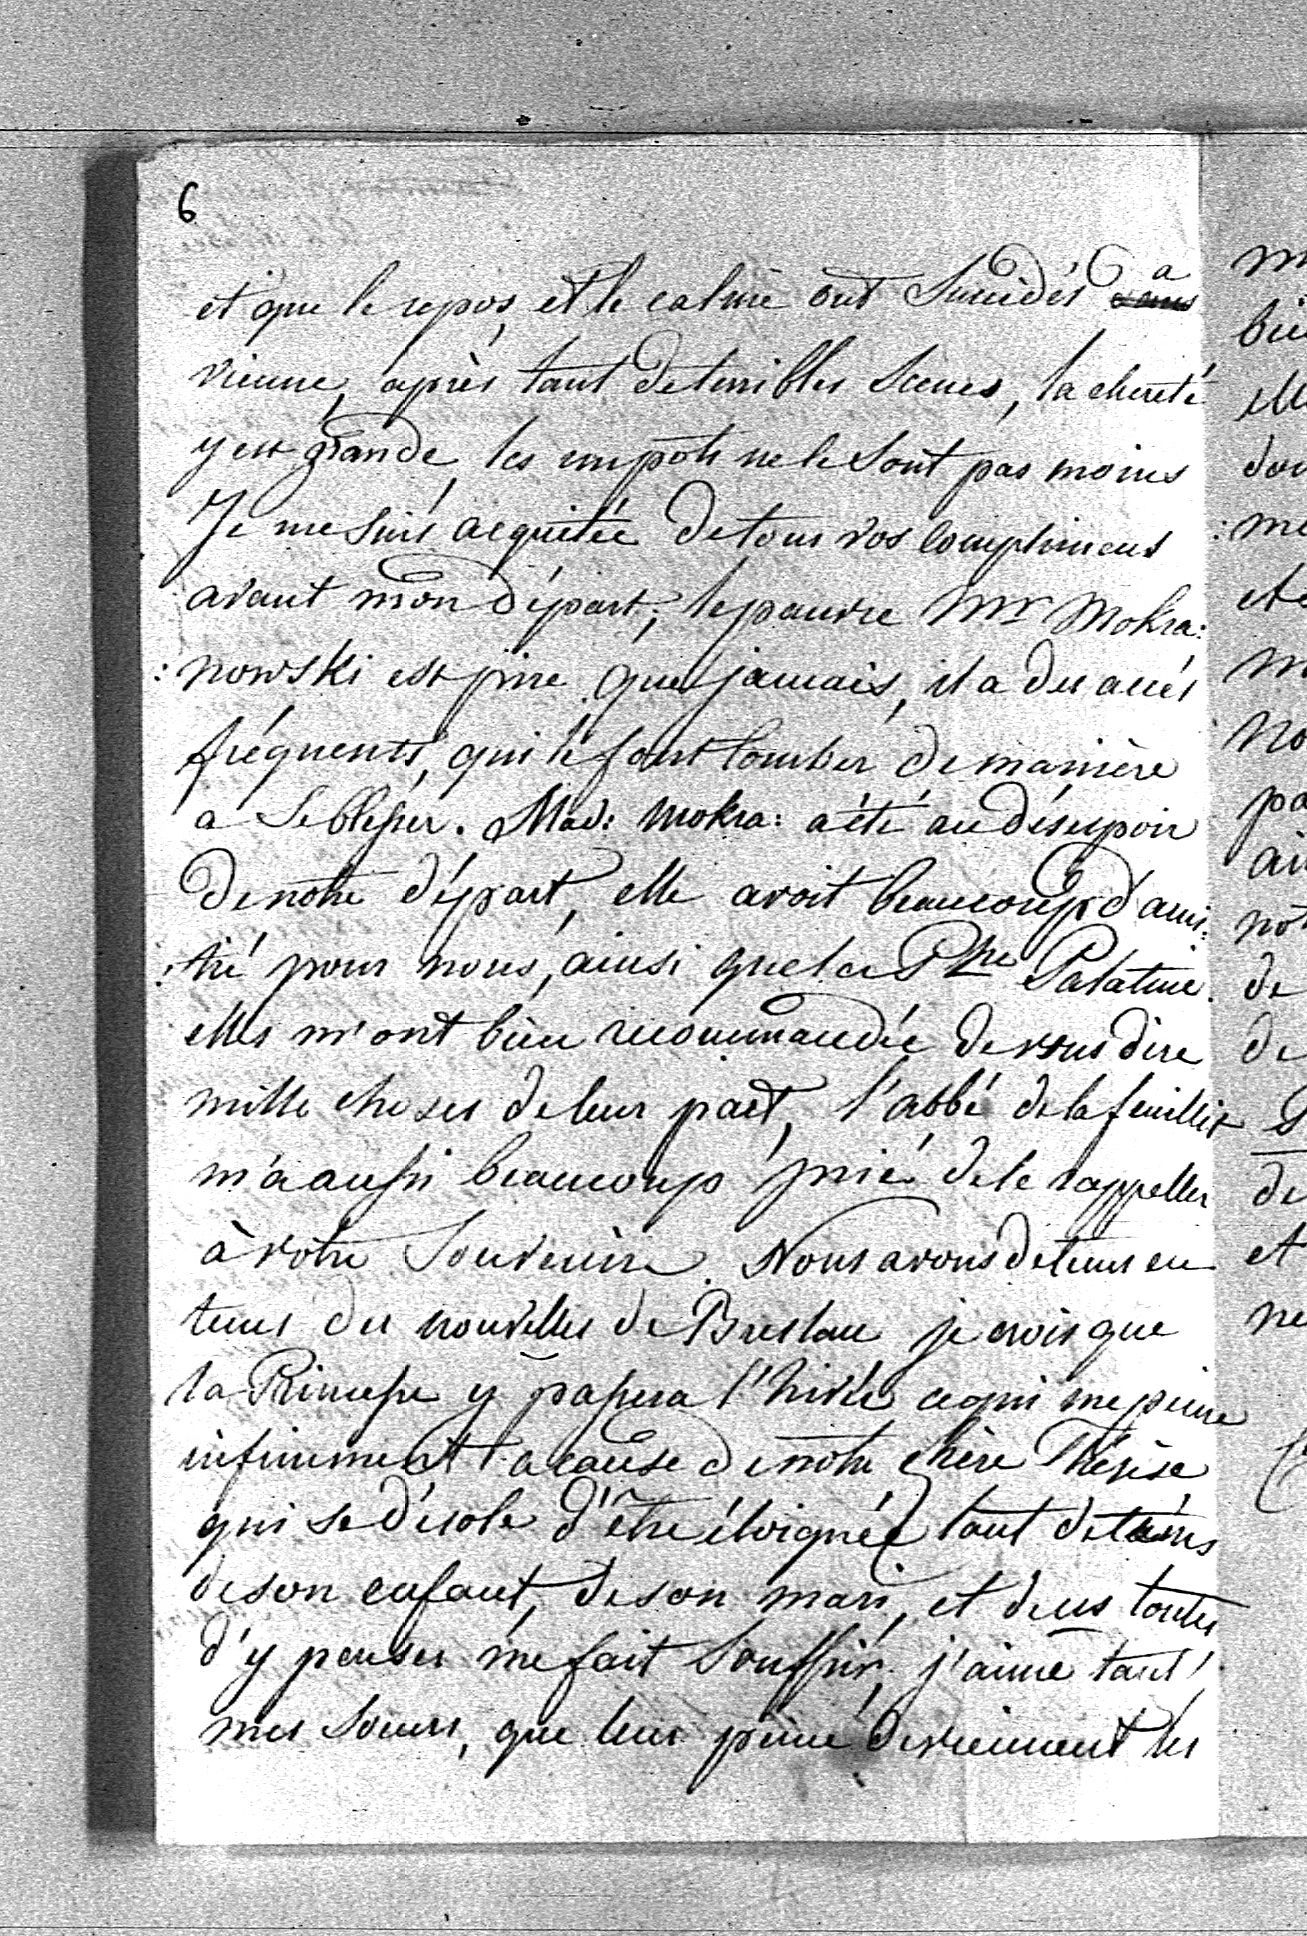 6
et que le repos, et le calme ont Succédés a
vienne, après tant de terribles Scenes, la cherté
y est grande, les impôts ne le Sont pas moins
Je me suis acquitée de tous vos complimens
avant mon départ, le pauvre Mr Mokra:
:nowski est pire que jamais, il a des accés
fréquents, qui le font tomber de manière
a Se blesser. Mad: Mokra: a été au désespoir
De notre départ, elle avoit beaucoup d'ami:
:tié pour nous, ainsi que la Psse Palatine.
elles m'ont bien recommandée de vous dire
mille choses de leur part, l'abbé de la feuillet
m'a aussi beaucoup prié de le rappeller
à votre Souvenire. Nous avons de tems en
tems des nouvelles de Breslau je crois que
la Princesse y passera l'hiver ce qui me peine
infiniment a cause de notre chère Thérèse
qui se désole d'être éloignée tant de tems
de son enfant, de son mari, et deus toutes
d'y penser me fait Souffrir, j'aime tant
mes Soeurs, que leur peine deviennent les
m
bie
elle
don
:me
et
m
No
pa
au
not
de
de
P
de
et
ne